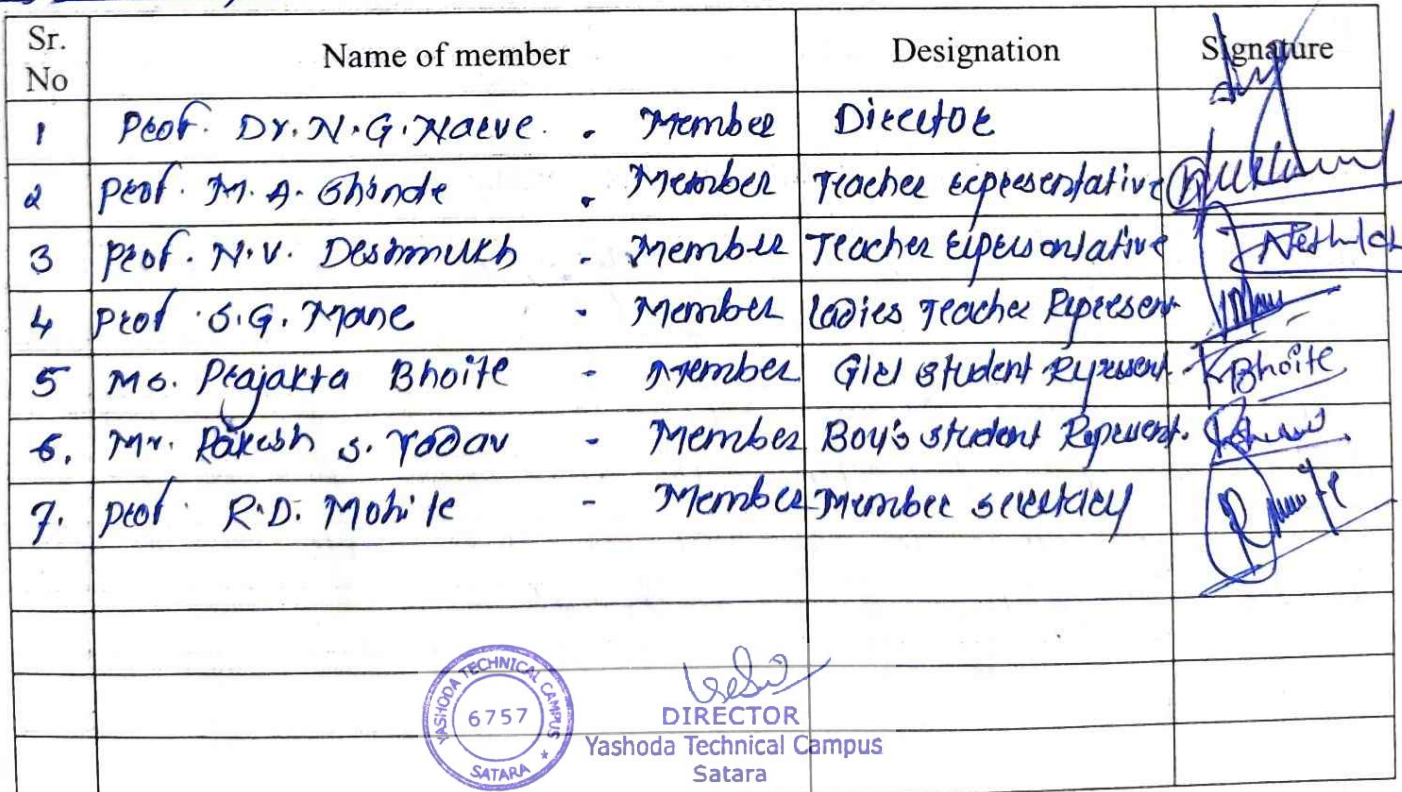 Sr. No Name of member Designation Signature
1 Prof. Dr. N.G. Narve. - Member Director
2 Prof. M.A. Shinde - Member Teacher representative
3 Prof. N.V. Deshmukh - Member Teacher representative
4 Prof. S.G. Mane - Member Ladies Teacher Represent
5 Ms. Prajakta Bhoite - Member Girl Student Represent. Bhoite
6. Mr. Rakesh S. Yadav - Member Boy's student Represent.
7. Prof. R.D. Mohite - Member Member secretary
YASHODA TECHNICAL CAMPUS
6757
SATARA
DIRECTOR
Yashoda Technical Campus
Satara